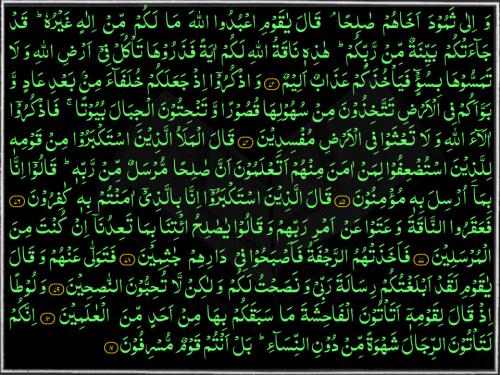 وَ اِلٰى ثَمُوْدَ اَخَاهُمْ صٰلِحًا ۘ قَالَ يٰقَوْمِ اعْبُدُوا اللّٰهَ مَا لَكُمْ مِّنْ اِلٰهٍ غَيْرُهٗ ؕ قَدْ
جَآءَتْكُمْ بَيِّنَةٌ مِّنْ رَّبِّكُمْ ؕ هٰذِهٖ نَاقَةُ اللّٰهِ لَكُمْ اٰيَةً فَذَرُوْهَا تَاْكُلْ فِيْۤ اَرْضِ اللّٰهِ وَ لَا
تَمَسُّوْهَا بِسُوْٓءٍ فَيَاْخُذَكُمْ عَذَابٌ اَلِيْمٌ ﴿۷۳﴾ وَ اذْكُرُوْۤا اِذْ جَعَلَكُمْ خُلَفَآءَ مِنْۢ بَعْدِ عَادٍ وَّ
بَوَّاَكُمْ فِي الْاَرْضِ تَتَّخِذُوْنَ مِنْ سُهُوْلِهَا قُصُوْرًا وَّ تَنْحِتُوْنَ الْجِبَالَ بُيُوْتًا ۚ فَاذْكُرُوْۤا
اٰلَآءَ اللّٰهِ وَ لَا تَعْثَوْا فِي الْاَرْضِ مُفْسِدِيْنَ ﴿۷۴﴾ قَالَ الْمَلَاُ الَّذِيْنَ اسْتَكْبَرُوْا مِنْ قَوْمِهٖ
لِلَّذِيْنَ اسْتُضْعِفُوْا لِمَنْ اٰمَنَ مِنْهُمْ اَتَعْلَمُوْنَ اَنَّ صٰلِحًا مُّرْسَلٌ مِّنْ رَّبِّهٖ ؕ قَالُوْۤا اِنَّا
بِمَاۤ اُرْسِلَ بِهٖ مُؤْمِنُوْنَ ﴿۷۵﴾ قَالَ الَّذِيْنَ اسْتَكْبَرُوْۤا اِنَّا بِالَّذِيْۤ اٰمَنْتُمْ بِهٖ كٰفِرُوْنَ ﴿۷۶﴾
فَعَقَرُوا النَّاقَةَ وَ عَتَوْا عَنْ اَمْرِ رَبِّهِمْ وَ قَالُوْا يٰصٰلِحُ ائْتِنَا بِمَا تَعِدُنَاۤ اِنْ كُنْتَ مِنَ
الْمُرْسَلِيْنَ ﴿۷۷﴾ فَاَخَذَتْهُمُ الرَّجْفَةُ فَاَصْبَحُوْا فِيْ دَارِهِمْ جٰثِمِيْنَ ﴿۷۸﴾ فَتَوَلّٰى عَنْهُمْ وَ قَالَ
يٰقَوْمِ لَقَدْ اَبْلَغْتُكُمْ رِسَالَةَ رَبِّيْ وَ نَصَحْتُ لَكُمْ وَ لٰكِنْ لَّا تُحِبُّوْنَ النّٰصِحِيْنَ ﴿۷۹﴾ وَ لُوْطًا
اِذْ قَالَ لِقَوْمِهٖۤ اَتَاْتُوْنَ الْفَاحِشَةَ مَا سَبَقَكُمْ بِهَا مِنْ اَحَدٍ مِّنَ الْعٰلَمِيْنَ ﴿۸۰﴾ اِنَّكُمْ
لَتَاْتُوْنَ الرِّجَالَ شَهْوَةً مِّنْ دُوْنِ النِّسَآءِ ؕ بَلْ اَنْتُمْ قَوْمٌ مُّسْرِفُوْنَ ﴿۸۱﴾